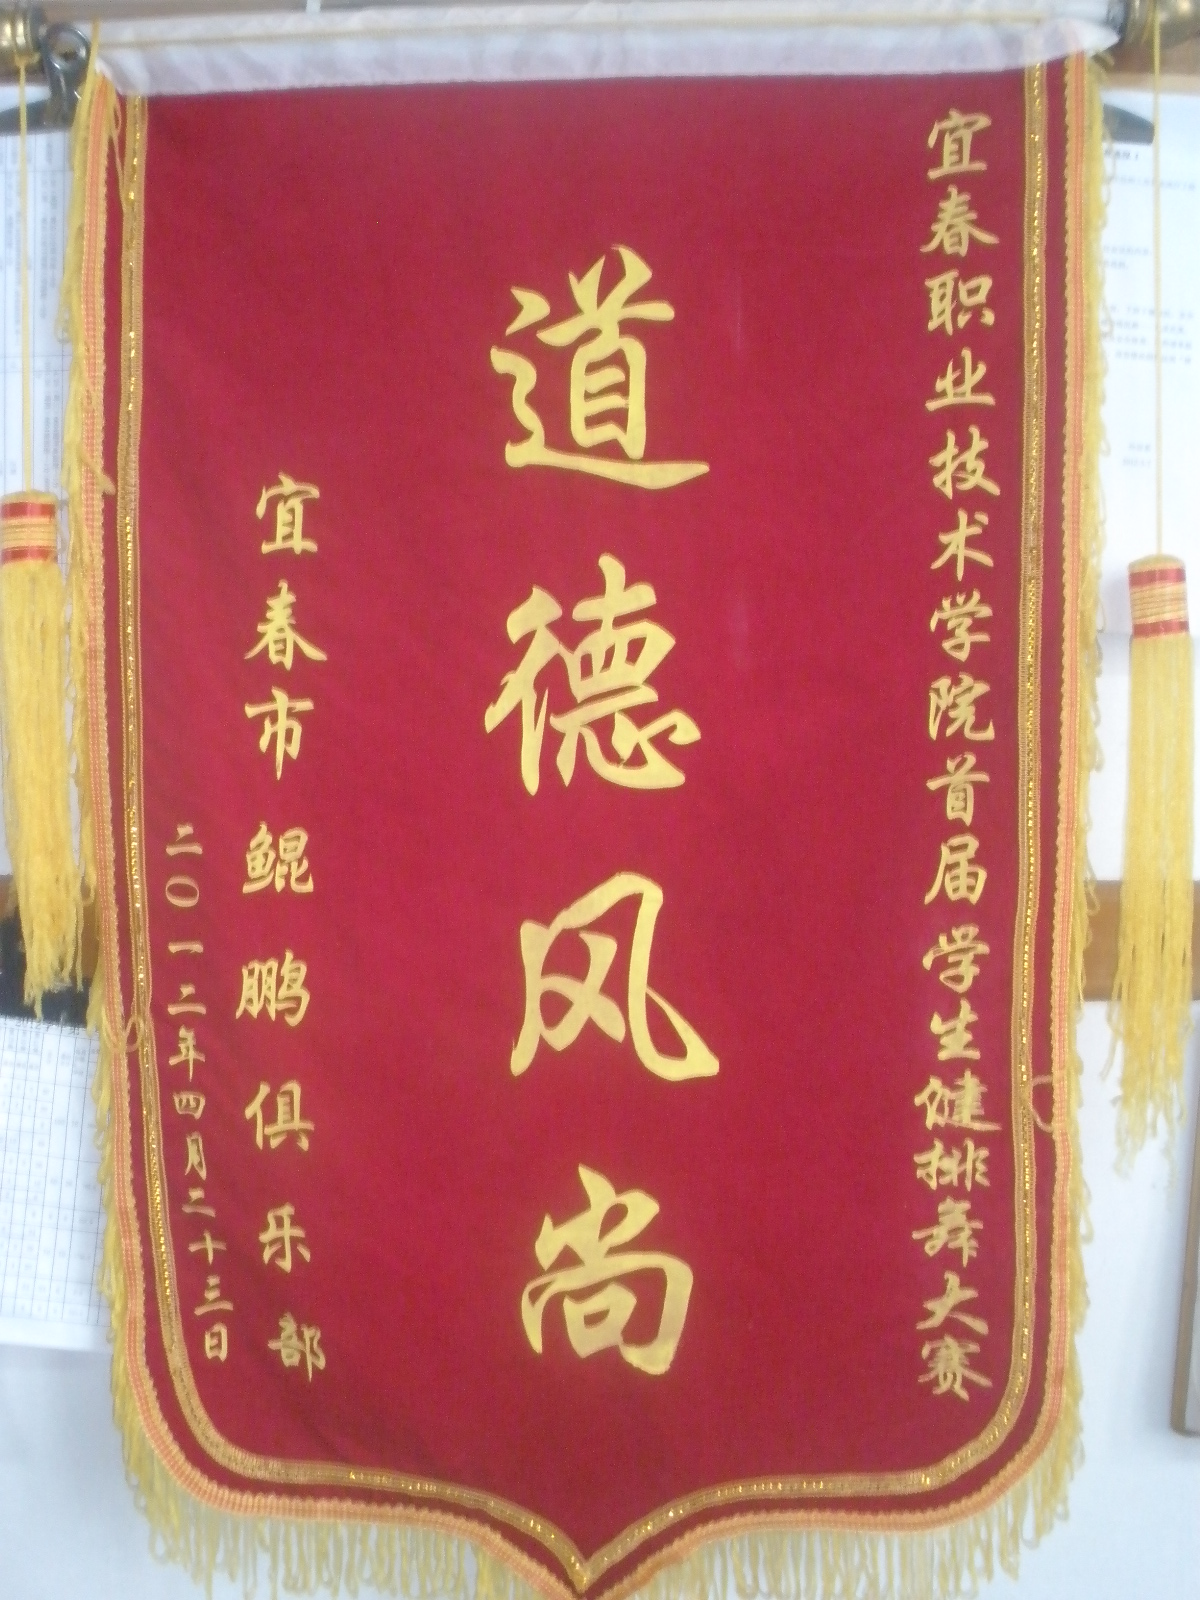 宜春职业技术学院首届学生健排舞大赛
道德风尚
宜春市鲲鹏俱乐部
二〇一二年四月二十三日